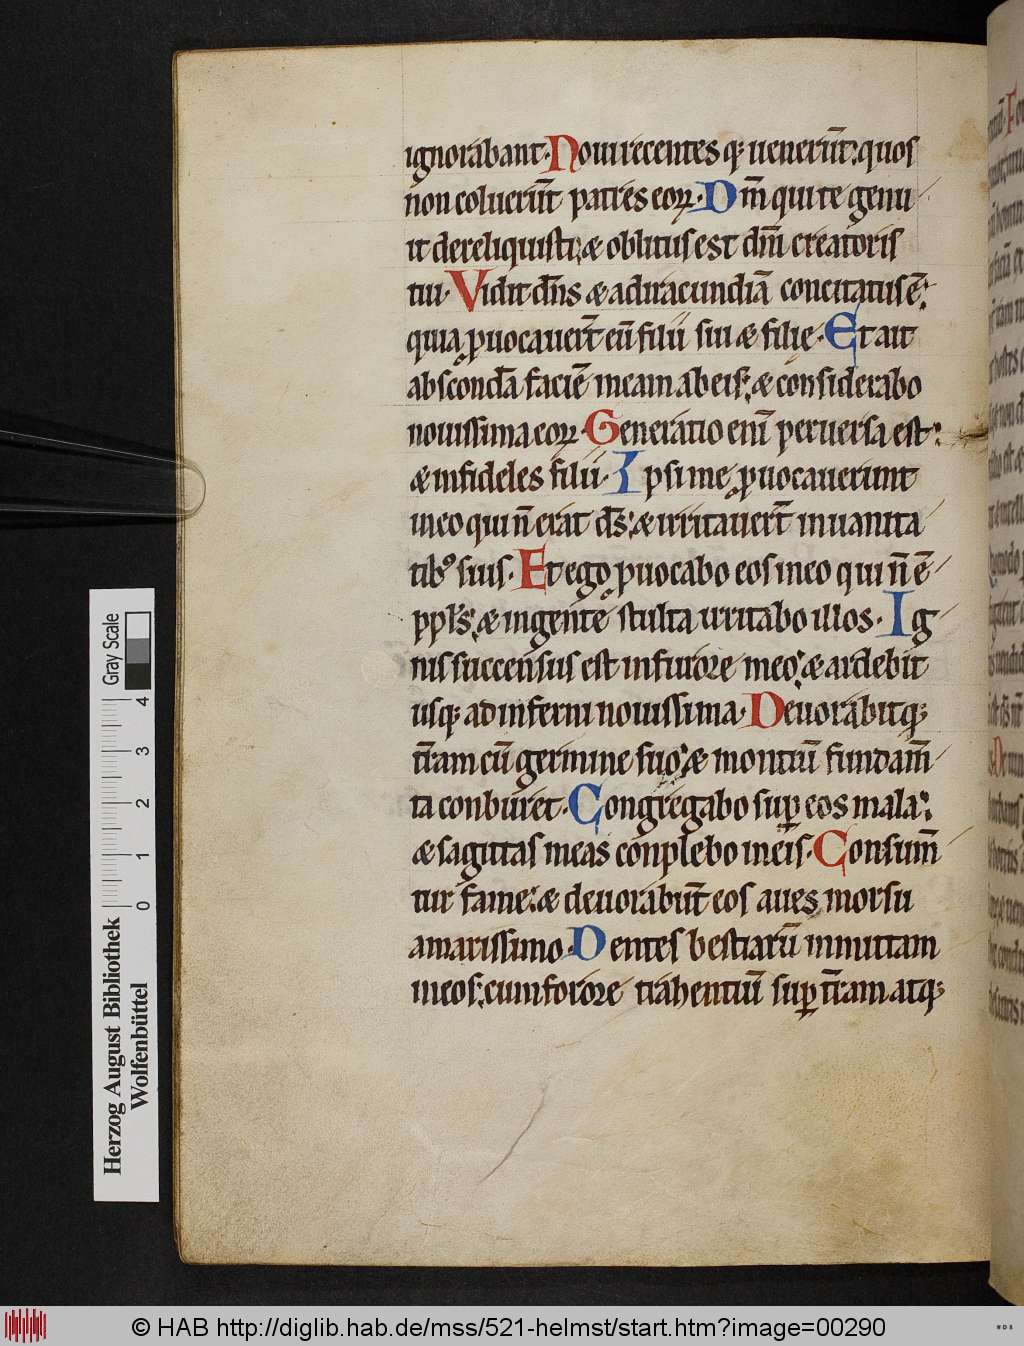 ignorabant. Noui recentes q; uenerūt: quos
non coluerūt patres eoꝝ. Dm̄ qui te genu-
it dereliquisti; & oblitus est dn̄i creatoris
tui. Vidit dn̄s & ad iracundiā concitatus ē:
quia ꝓuocauer̄t eū filii sui & filie. Et ait
abscondā faciē meam ab eis: & considerabo
nouissima eoꝝ. Generatio enī peruersa est:
& infideles filii. Ipsi me ꝓuocauerunt
in eo qui n̄ erat ds̄: & irritauer̄t in uanita-
tibꝰ suis. Et ego ꝓuocabo eos in eo qui n̄ ē
ppl̄s; & in gente stulta irritabo illos. Ig-
nis succensus est in furore meo: & ardebit
usq; ad inferni nouissima. Deuorabitq;
t̄ram cū germine suo: & montiū fundam̄-
ta conburet. Congregabo suꝑ eos mala:
& sagittas meas conplebo in eis. Consum̄-
tur fame: & deuorabūt eos aues morsu
amarissimo. Dentes bestiarū inmittam
in eos; cum forore trahentiū suꝑ t̄ram atq;
Gray Scale
4
3
2
1
0
Herzog August Bibliothek
Wolfenbüttel
© HAB http://diglib.hab.de/mss/521-helmst/start.htm?image=00290